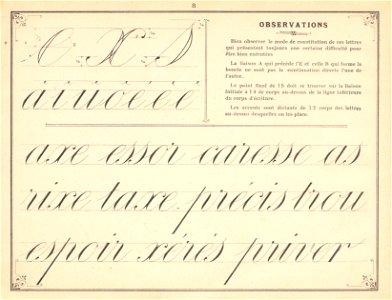 8
OBSERVATIONS
Bien observer le mode de constitution de ces lettres
qui présentent toujours une certaine difficulté pour
être bien exécutées.
La liaison A qui précède l'E et celle B qui forme la
boucle ne sont pas la continuation directe l'une de
l'autre.
Le point final de l'S doit se trouver sur la liaison
initiale à 1/4 de corps au-dessus de la ligne inférieure
du corps d'écriture.
Les accents sont distants de 1/2 corps des lettres
au-dessus desquelles on les place.
e x s
à i ü ô é è ê
axe essor caresse as
rixe taxe précis trou
espoir xérès priver